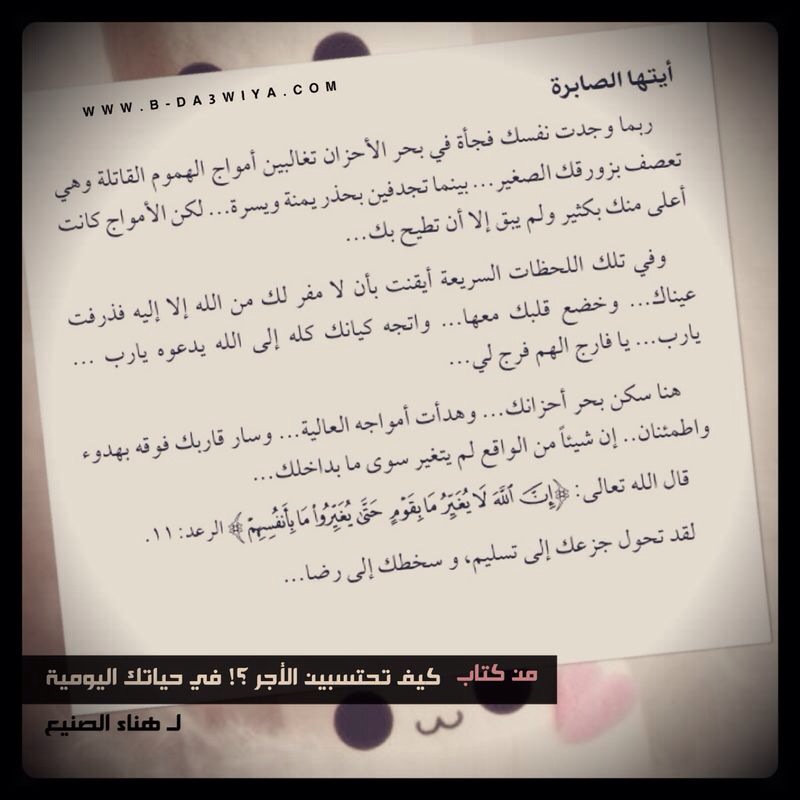 WWW.B-DA3WIYA.COM
أيتها الصابرة
ربما وجدت نفسك فجأة في بحر الأحزان تغالبين أمواج الهموم القاتلة وهي
تعصف بزورقك الصغير... بينما تجدفين بحذر يمنة ويسرة... لكن الأمواج كانت
أعلى منك بكثير ولم يبق إلا أن تطيح بك...
وفي تلك اللحظات السريعة أيقنت بأن لا مفر لك من الله إلا إليه فذرفت
عيناك... وخضع قلبك معها... واتجه كيانك كله إلى الله يدعوه يارب ...
يارب... يا فارج الهم فرج لي...
هنا سكن بحر أحزانك... وهدأت أمواجه العالية... وسار قاربك فوقه بهدوء
واطمئنان.. إن شيئاً من الواقع لم يتغير سوى ما بداخلك...
قال الله تعالى: ﴿إِنَّ ٱللَّهَ لَا يُغَيِّرُ مَا بِقَوْمٍ حَتَّىٰ يُغَيِّرُوا۟ مَا بِأَنفُسِهِمْ﴾ الرعد: ١١.
لقد تحول جزعك إلى تسليم، و سخطك إلى رضا...
من كتاب كيف تحتسبين الأجر ؟! في حياتك اليومية
لـ هناء الصنيع